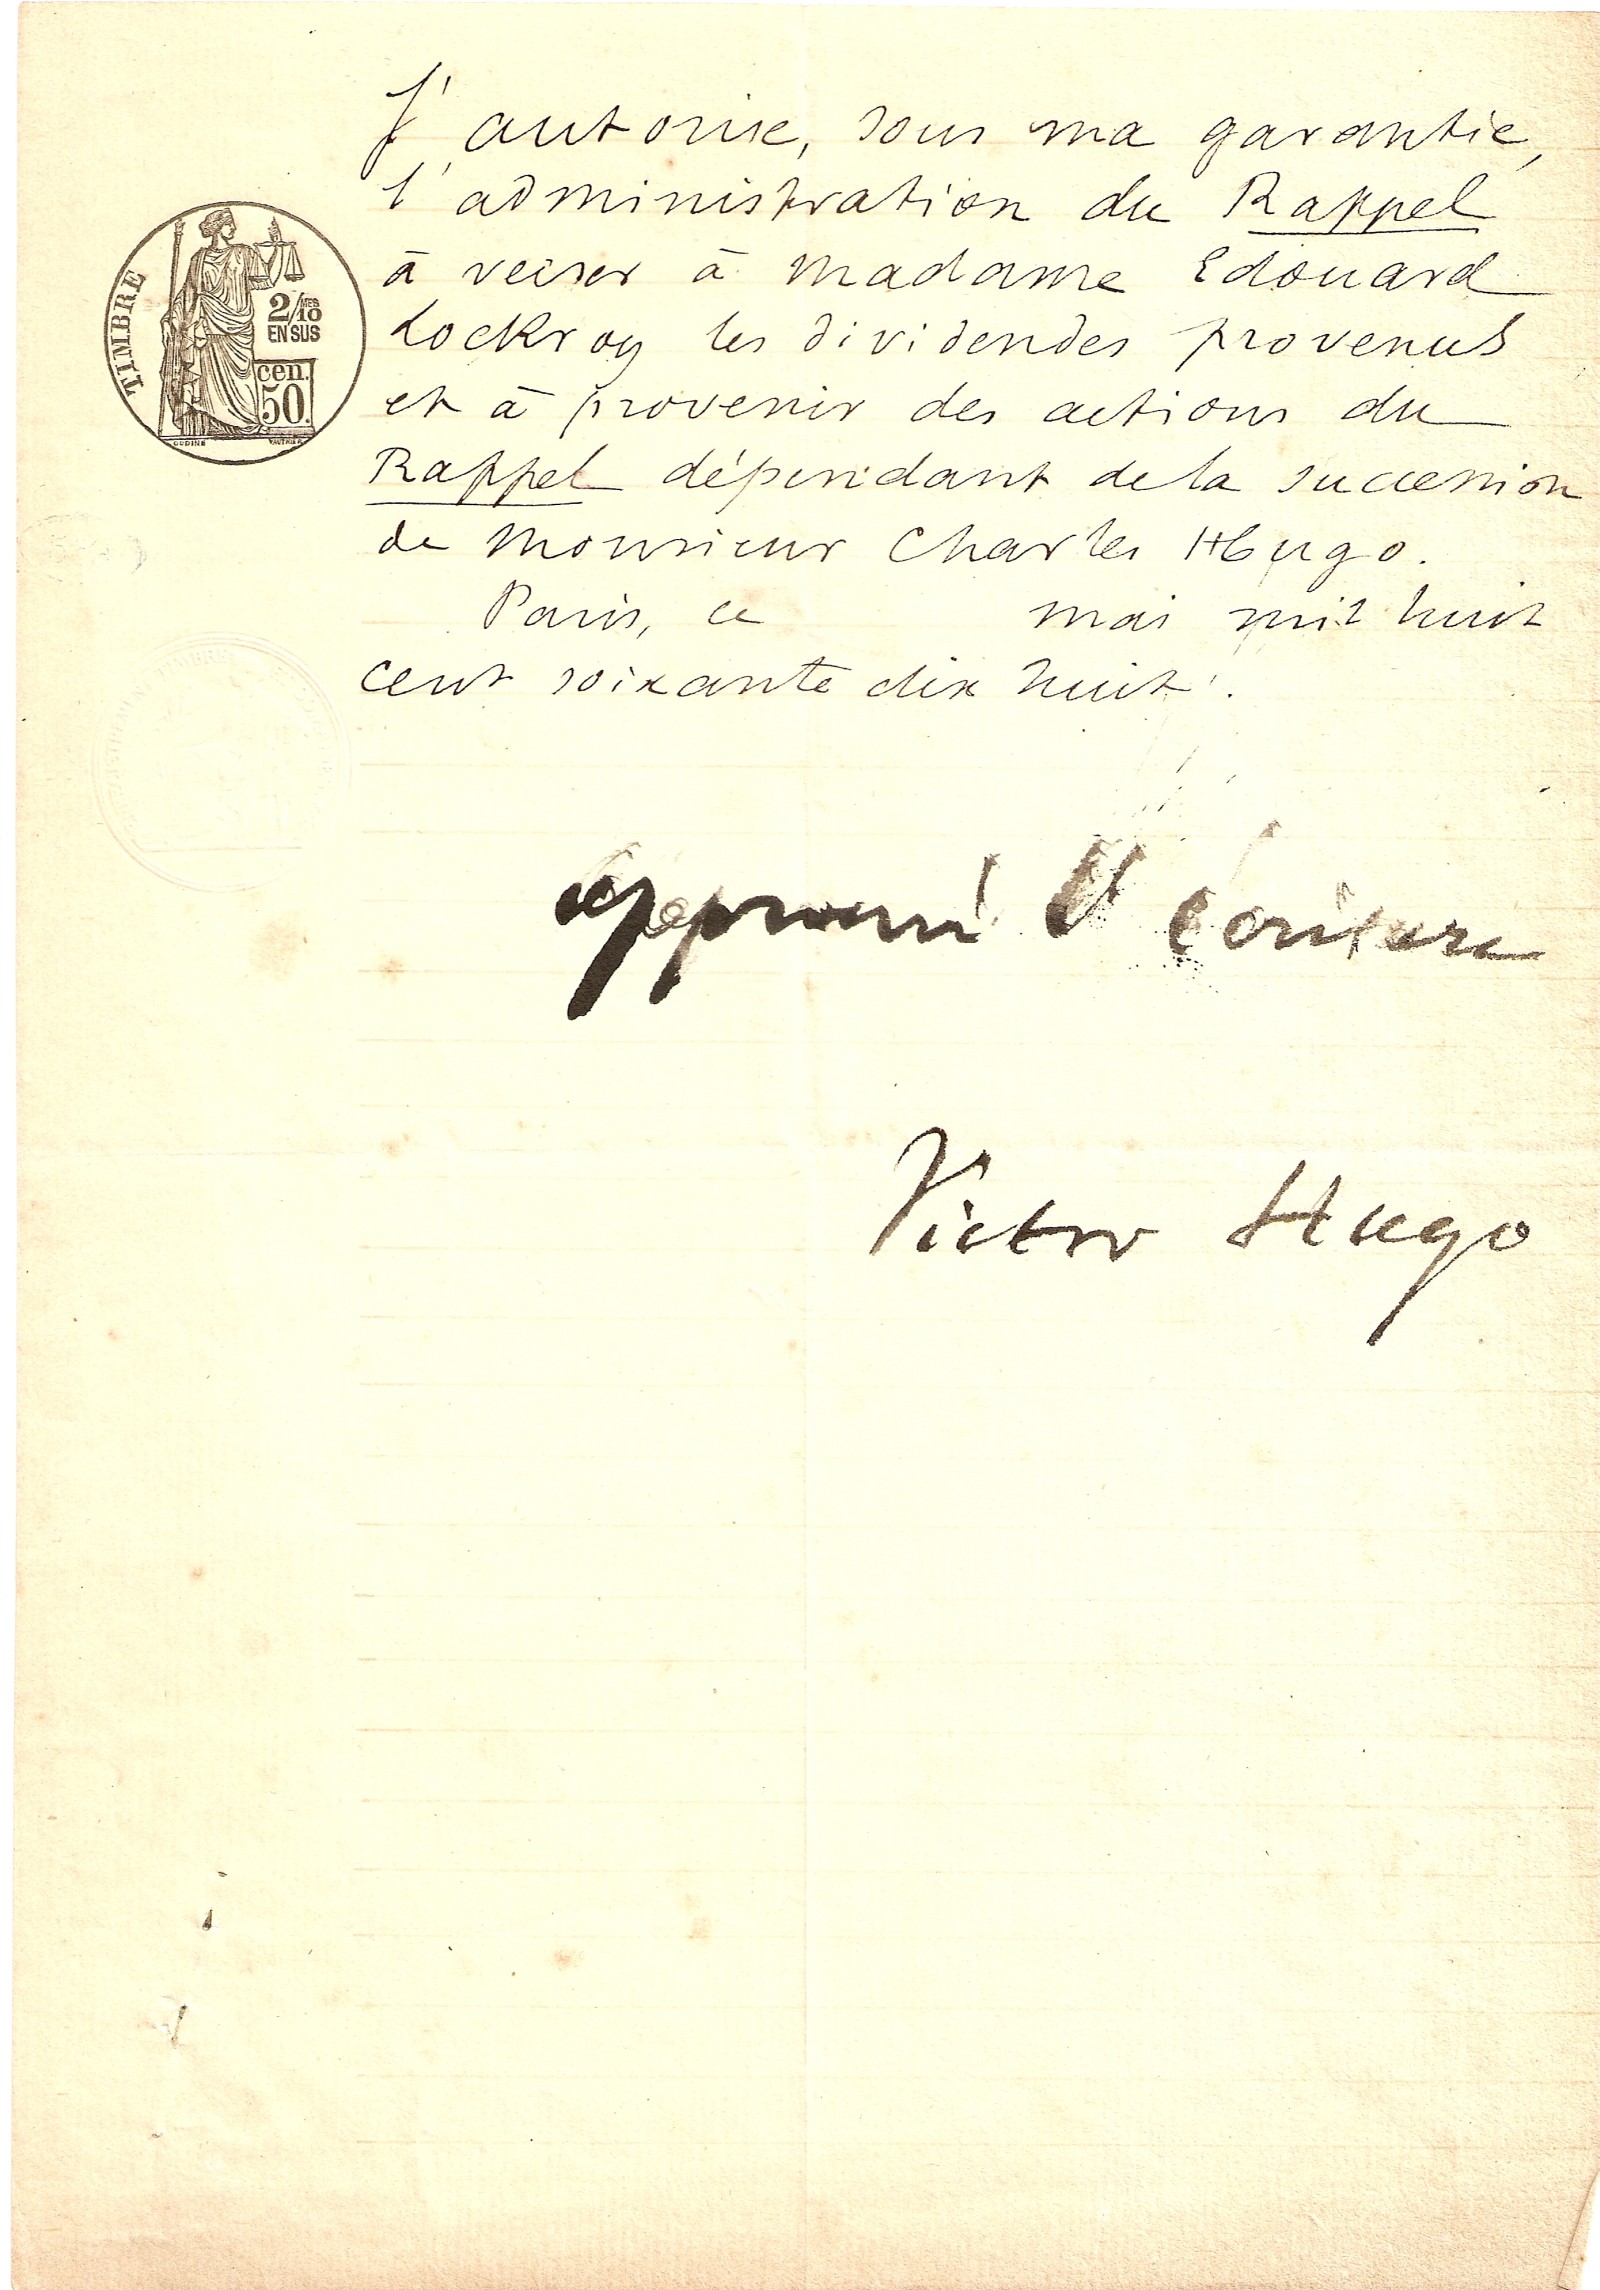 J'autorise, sous ma garantie,
l'administration du Rappel
à verser à Madame Edouard
Lockroy les dividendes provenus
et à provenir des actions du
Rappel dépendant de la succession
de Monsieur Charles Hugo.
Paris, ce mai mil huit
cent soixante dix huit.
approuvé l'écriture
Victor Hugo
TIMBRE
2/10 MES
EN SUS
cen.
50.
OUDINÉ